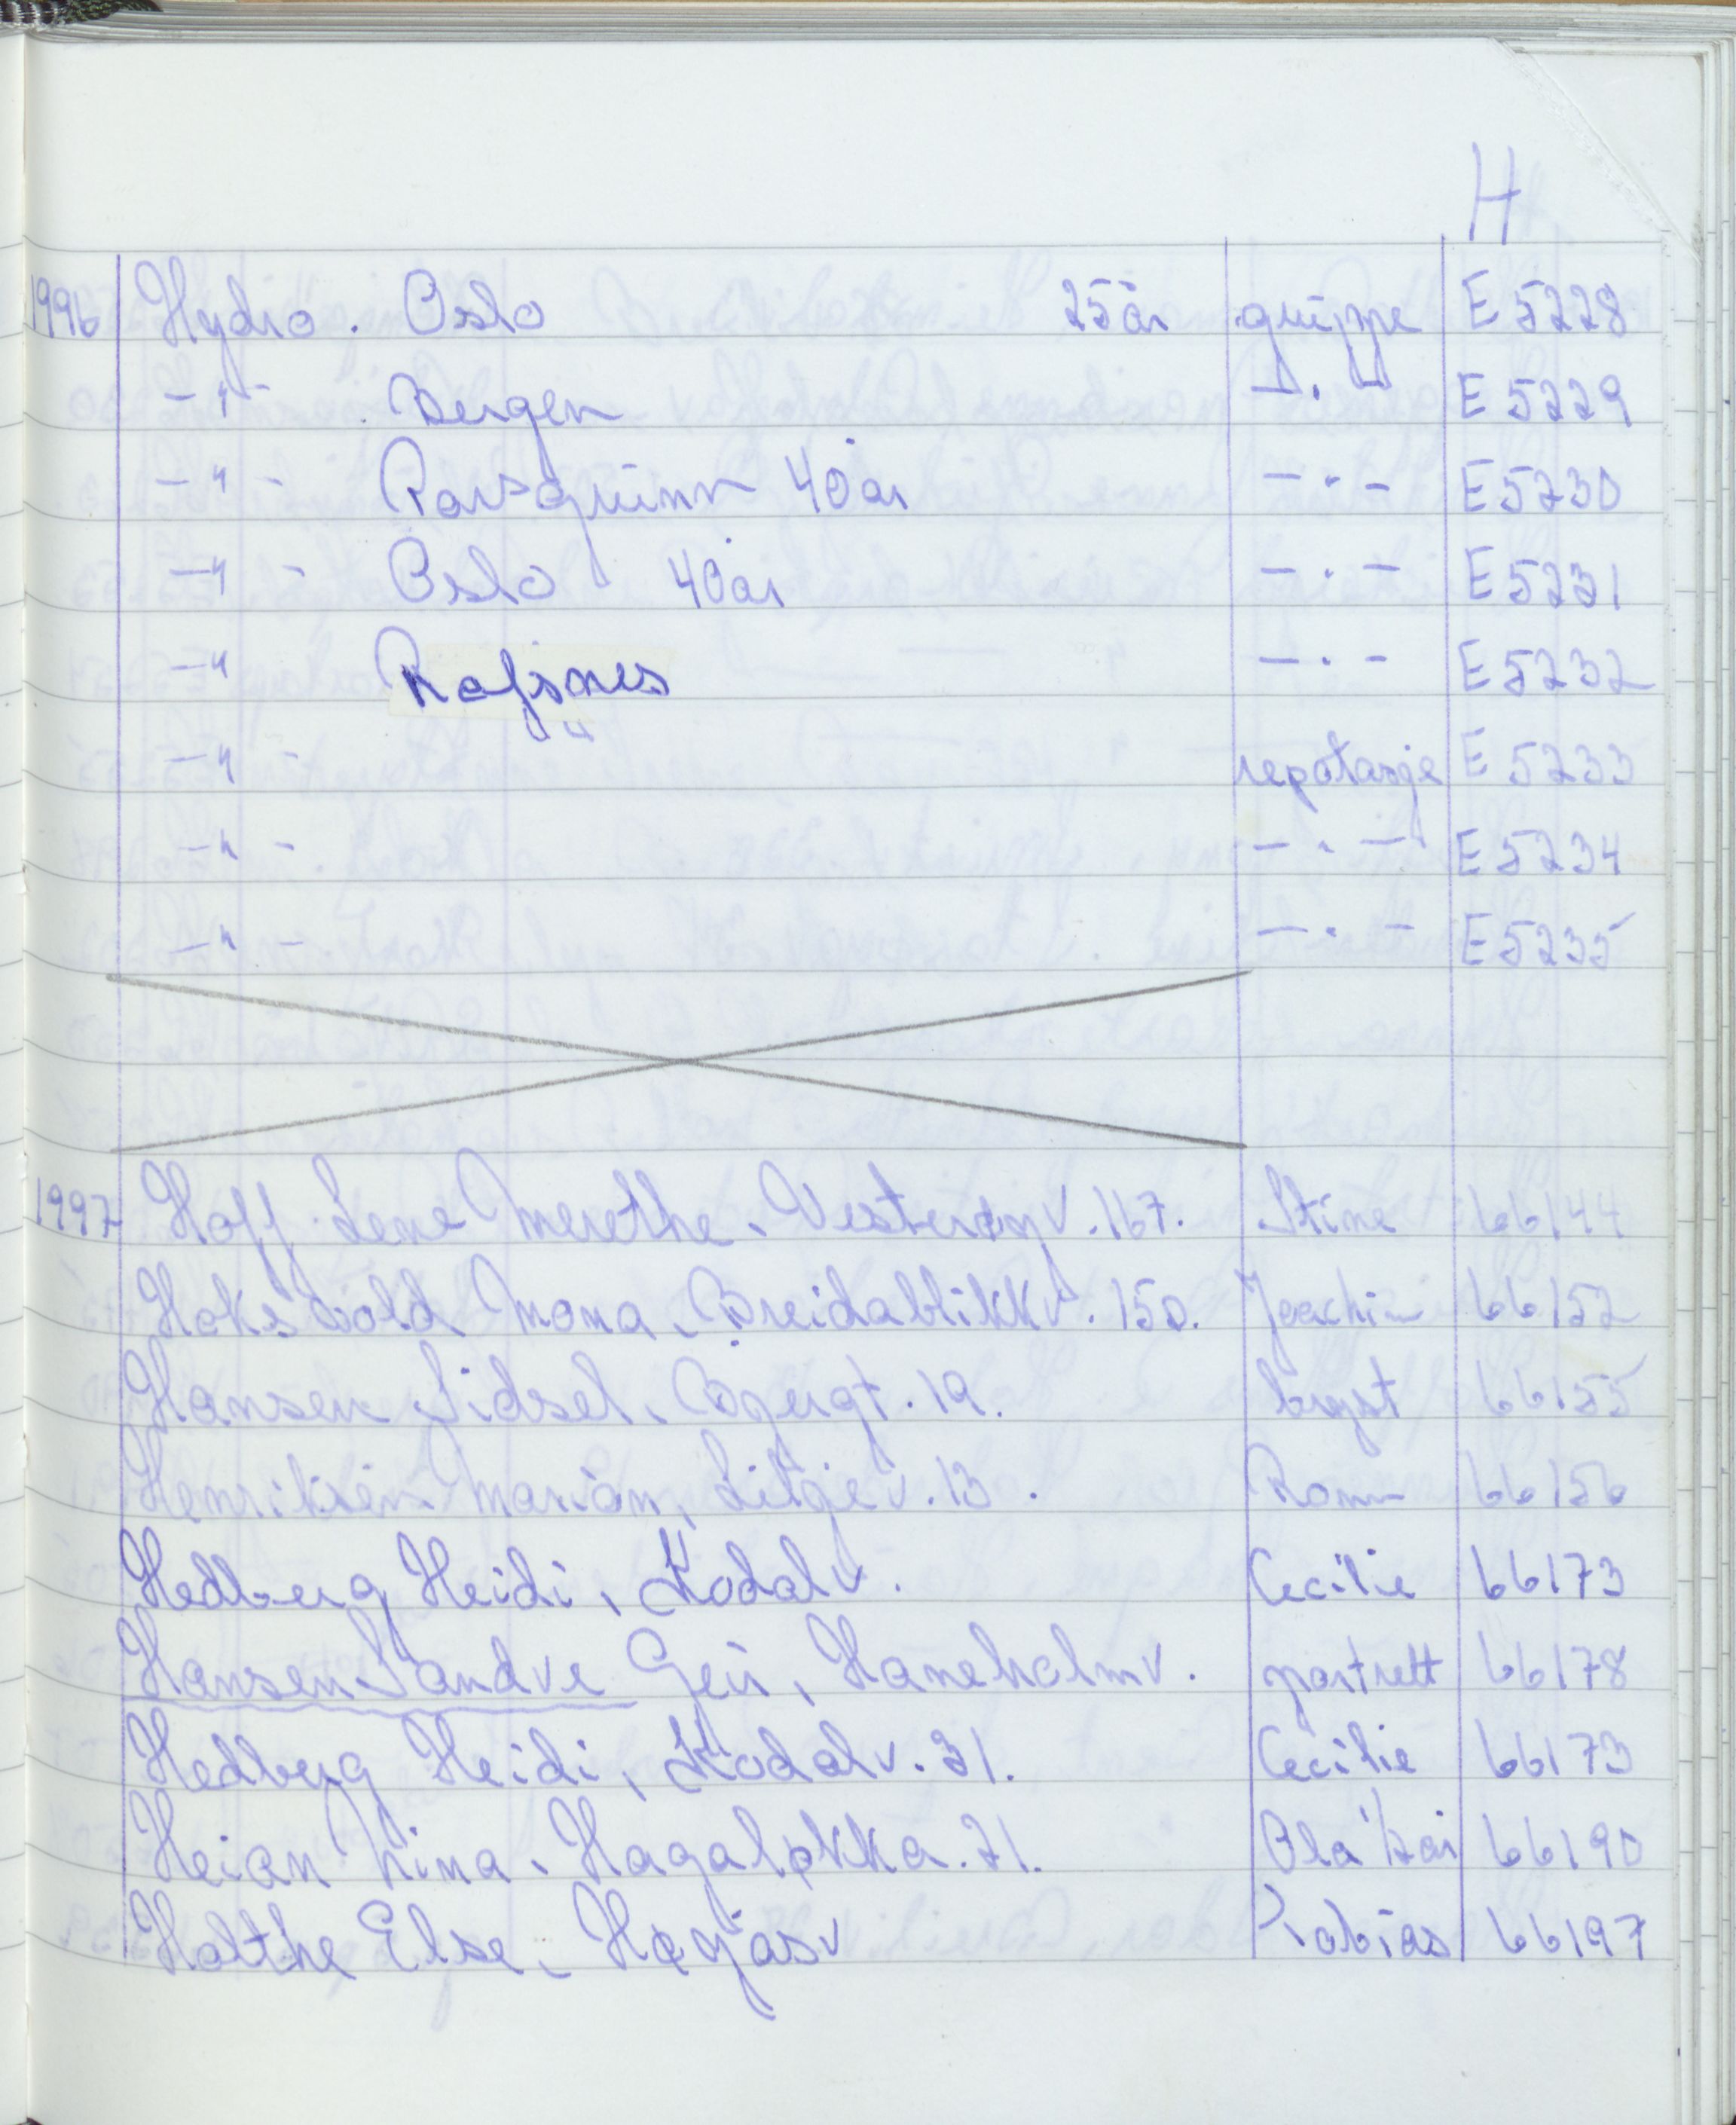 H
1996 Hydro. Oslo 25år gruppe E 5228
- " - . Bergen - . - E 5229
- " - Porsgrunn 40 år - . - E 5230
- " - Oslo 40 år - . - E 5231
- " Rafsnes - . - E 5232
- " - repotasje E 5233
- " - - . - E 5234
- " - - . - E 5235
1997 Hoff Lene Merethe. Vesterøyv. 167. Stine 66144
Høksvold Mona. Breidablikkv. 150. Joachim 66152
Hansen Sidsel. Bjergt. 19. bryst 66155
Henriksen Marian, Liljev. 13. 66156
Hedberg Heidi, Kodalv. Cecilie 66173
Hansen Sandve Geir, Haneholmv. portrett 66178
Hedberg Heidi, Kodalv. 31. Cecilie 66173
Heian Nina. Hagaløkka. 21. Ola 66190
Holthe Else. Høgåsv Tobias 66197